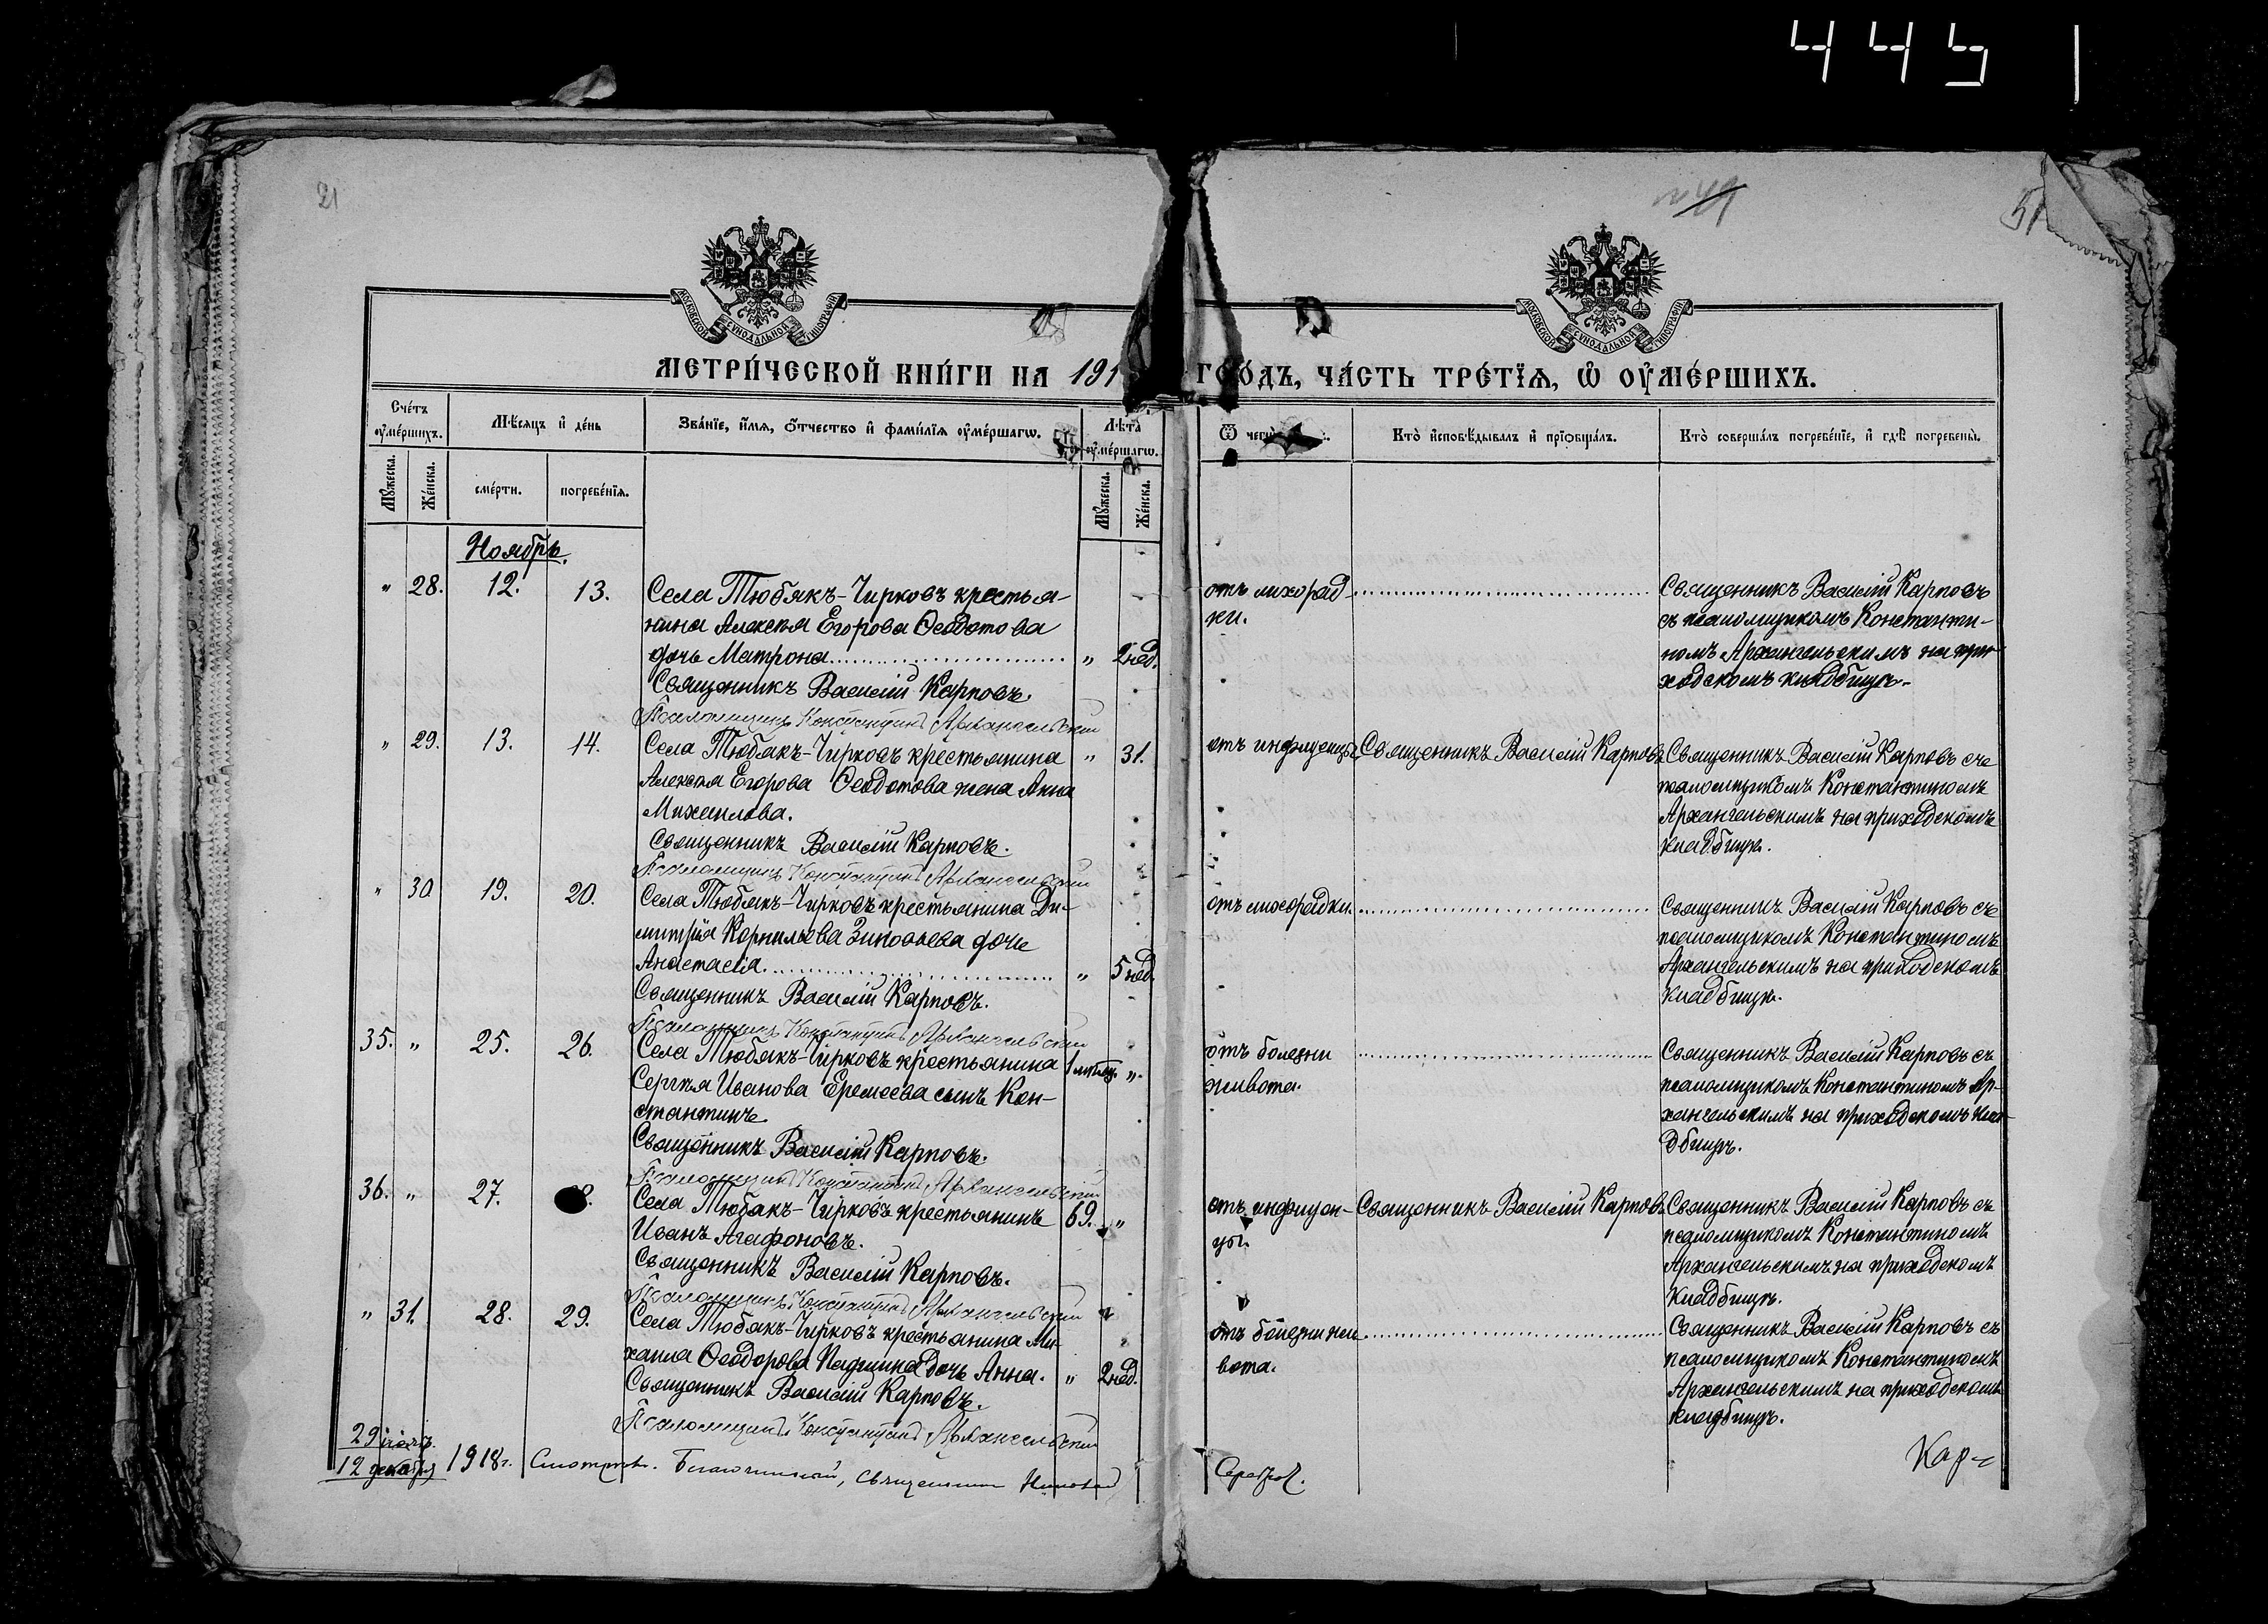 445
21
51
МОСКОВСКОЙ СУНОДАЛЬНОЙ ТИПОГРАФІИ
МОСКОВСКОЙ СУНОДАЛЬНОЙ ТИПОГРАФІИ
МЕТРИ́ЧЕСКОЙ КНИ́ГИ НА 191
ГО́ДЪ, ЧА́СТЬ ТРЕ́ТЇѦ, Ѡ҆ ОУ҆МЕ́РШИХЪ.
Сче́тъ оу҆ме́ршихъ.
Мѣ́сяцъ и҆ де́нь
Зва́нїе, и҆́мя, ѻ҆́тчество и҆ фами́лїя оу҆ме́ршагѡ.
Лѣ́та оу҆ме́ршагѡ.
Ѿ чегѡ̀
Кто̀ и҆сповѣ́дывалъ и҆ прїѡбща́лъ.
Кто̀ соверша́лъ погребе́нїе, и҆ гдѣ̀ погребены̀.
Мꙋ́жеска.
Же́нска.
сме́рти.
погребе́нїя.
Мꙋ́жеска.
Же́нска.
Ноябрь.
" 28. 12. 13. Села Тюбякъ-Чирковъ крестья-
нина Алексѣя Егорова Ѳеодотова
дочь Матрона " 2 нед.
Священникъ Василій Карповъ.
Псаломщикъ Константинъ Архангельскій
отъ лихорад-
ки.
Священникъ Василій Карповъ
съ псаломщикомъ Константи-
номъ Архангельскимъ на при-
ходскомъ кладбищѣ.
" 29. 13. 14. Села Тюбякъ-Чирковъ крестьянина " 31.
Алексѣя Егорова Ѳеодотова жена Анна
Михаилова.
Священникъ Василій Карповъ.
Псаломщикъ Константинъ Архангельскій
отъ инфлуенцы, Священникъ Василій Карповъ
Священникъ Василій Карповъ съ
псаломщикомъ Константиномъ
Архангельскимъ на приходскомъ
кладбищѣ.
" 30 19. 20. Села Тюбякъ-Чирковъ крестьянина Ди-
митрія Корнильева Зиновьева дочь
Анастасія " 5 нед.
Священникъ Василій Карповъ.
Псаломщикъ Константинъ Архангельскій
отъ лихорадки.
Священникъ Василій Карповъ съ
псаломщикомъ Константиномъ
Архангельскимъ на приходскомъ
кладбищѣ.
35. " 25. 26. Села Тюбякъ-Чирковъ крестьянина 1 мѣсяц. "
Сергѣя Иванова Еремѣева сынъ Кон-
стантинъ
Священникъ Василій Карповъ.
Псаломщикъ Константинъ Архангельскій
отъ болезни
живота.
Священникъ Василій Карповъ съ
псаломщикомъ Константиномъ Ар-
хангельскимъ на приходскомъ кла-
дбищѣ.
36. " 27. 8. Села Тюбякъ-Чирковъ крестьянинъ 69. "
Иванъ Агафоновъ.
Священникъ Василій Карповъ.
Псаломщикъ Константинъ Архангельскій
отъ инфлуен-
цы.
Священникъ Василій Карповъ
Священникъ Василій Карповъ съ
псаломщикомъ Константиномъ
Архангельскимъ на приходскомъ
кладбищѣ.
" 31. 28. 29. Села Тюбякъ-Чирковъ крестьянина Ми-
хаила Ѳеодорова дочь Анна. " 2 нед.
Священникъ Василій Карповъ.
Псаломщикъ Константинъ Архангельскій
отъ болезни жи-
вота.
Священникъ Василій Карповъ съ
псаломщикомъ Константиномъ
Архангельскимъ на приходскомъ
кладбищѣ.
29
12 декабря 1918 г. Благочинный, священникъ